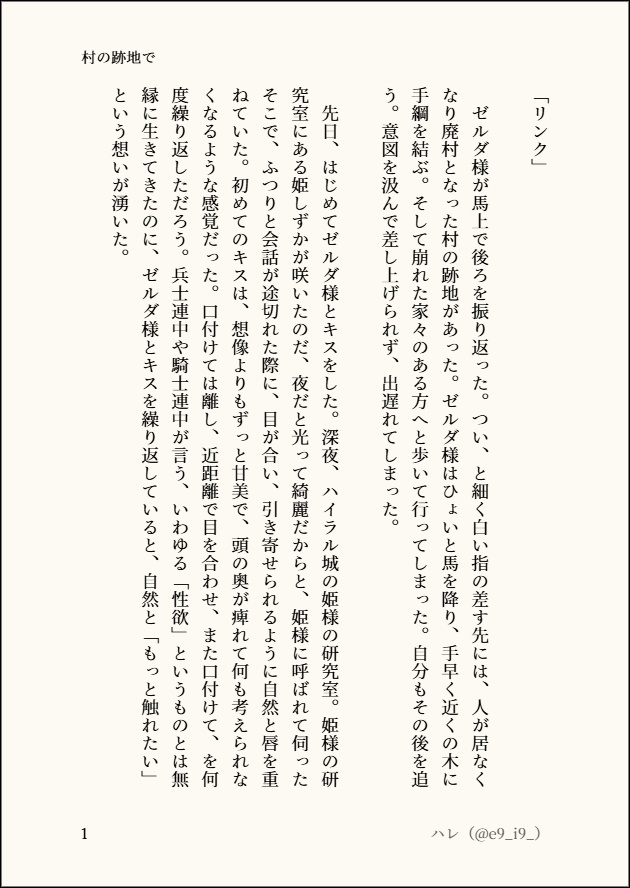 村の跡地で
「リンク」
　ゼルダ様が馬上で後ろを振り返った。つい、と細く白い指の差す先には、人が居なく
なり廃村となった村の跡地があった。ゼルダ様はひょいと馬を降り、手早く近くの木に
手綱を結ぶ。そして崩れた家々のある方へと歩いて行ってしまった。自分もその後を追
う。意図を汲んで差し上げられず、出遅れてしまった。
　先日、はじめてゼルダ様とキスをした。深夜、ハイラル城の姫様の研究室。姫様の研
究室にある姫しずかが咲いたのだ、夜だと光って綺麗だからと、姫様に呼ばれて伺った
そこで、ふつりと会話が途切れた際に、目が合い、引き寄せられるように自然と唇を重
ねていた。初めてのキスは、想像よりもずっと甘美で、頭の奥が痺れて何も考えられな
くなるような感覚だった。口付けては離し、近距離で目を合わせ、また口付けて、を何
度繰り返しただろう。兵士連中や騎士連中が言う、いわゆる「性欲」というものとは無
縁に生きてきたのに、ゼルダ様とキスを繰り返していると、自然と「もっと触れたい」
という想いが湧いた。
1
ハレ（@e9_i9_）